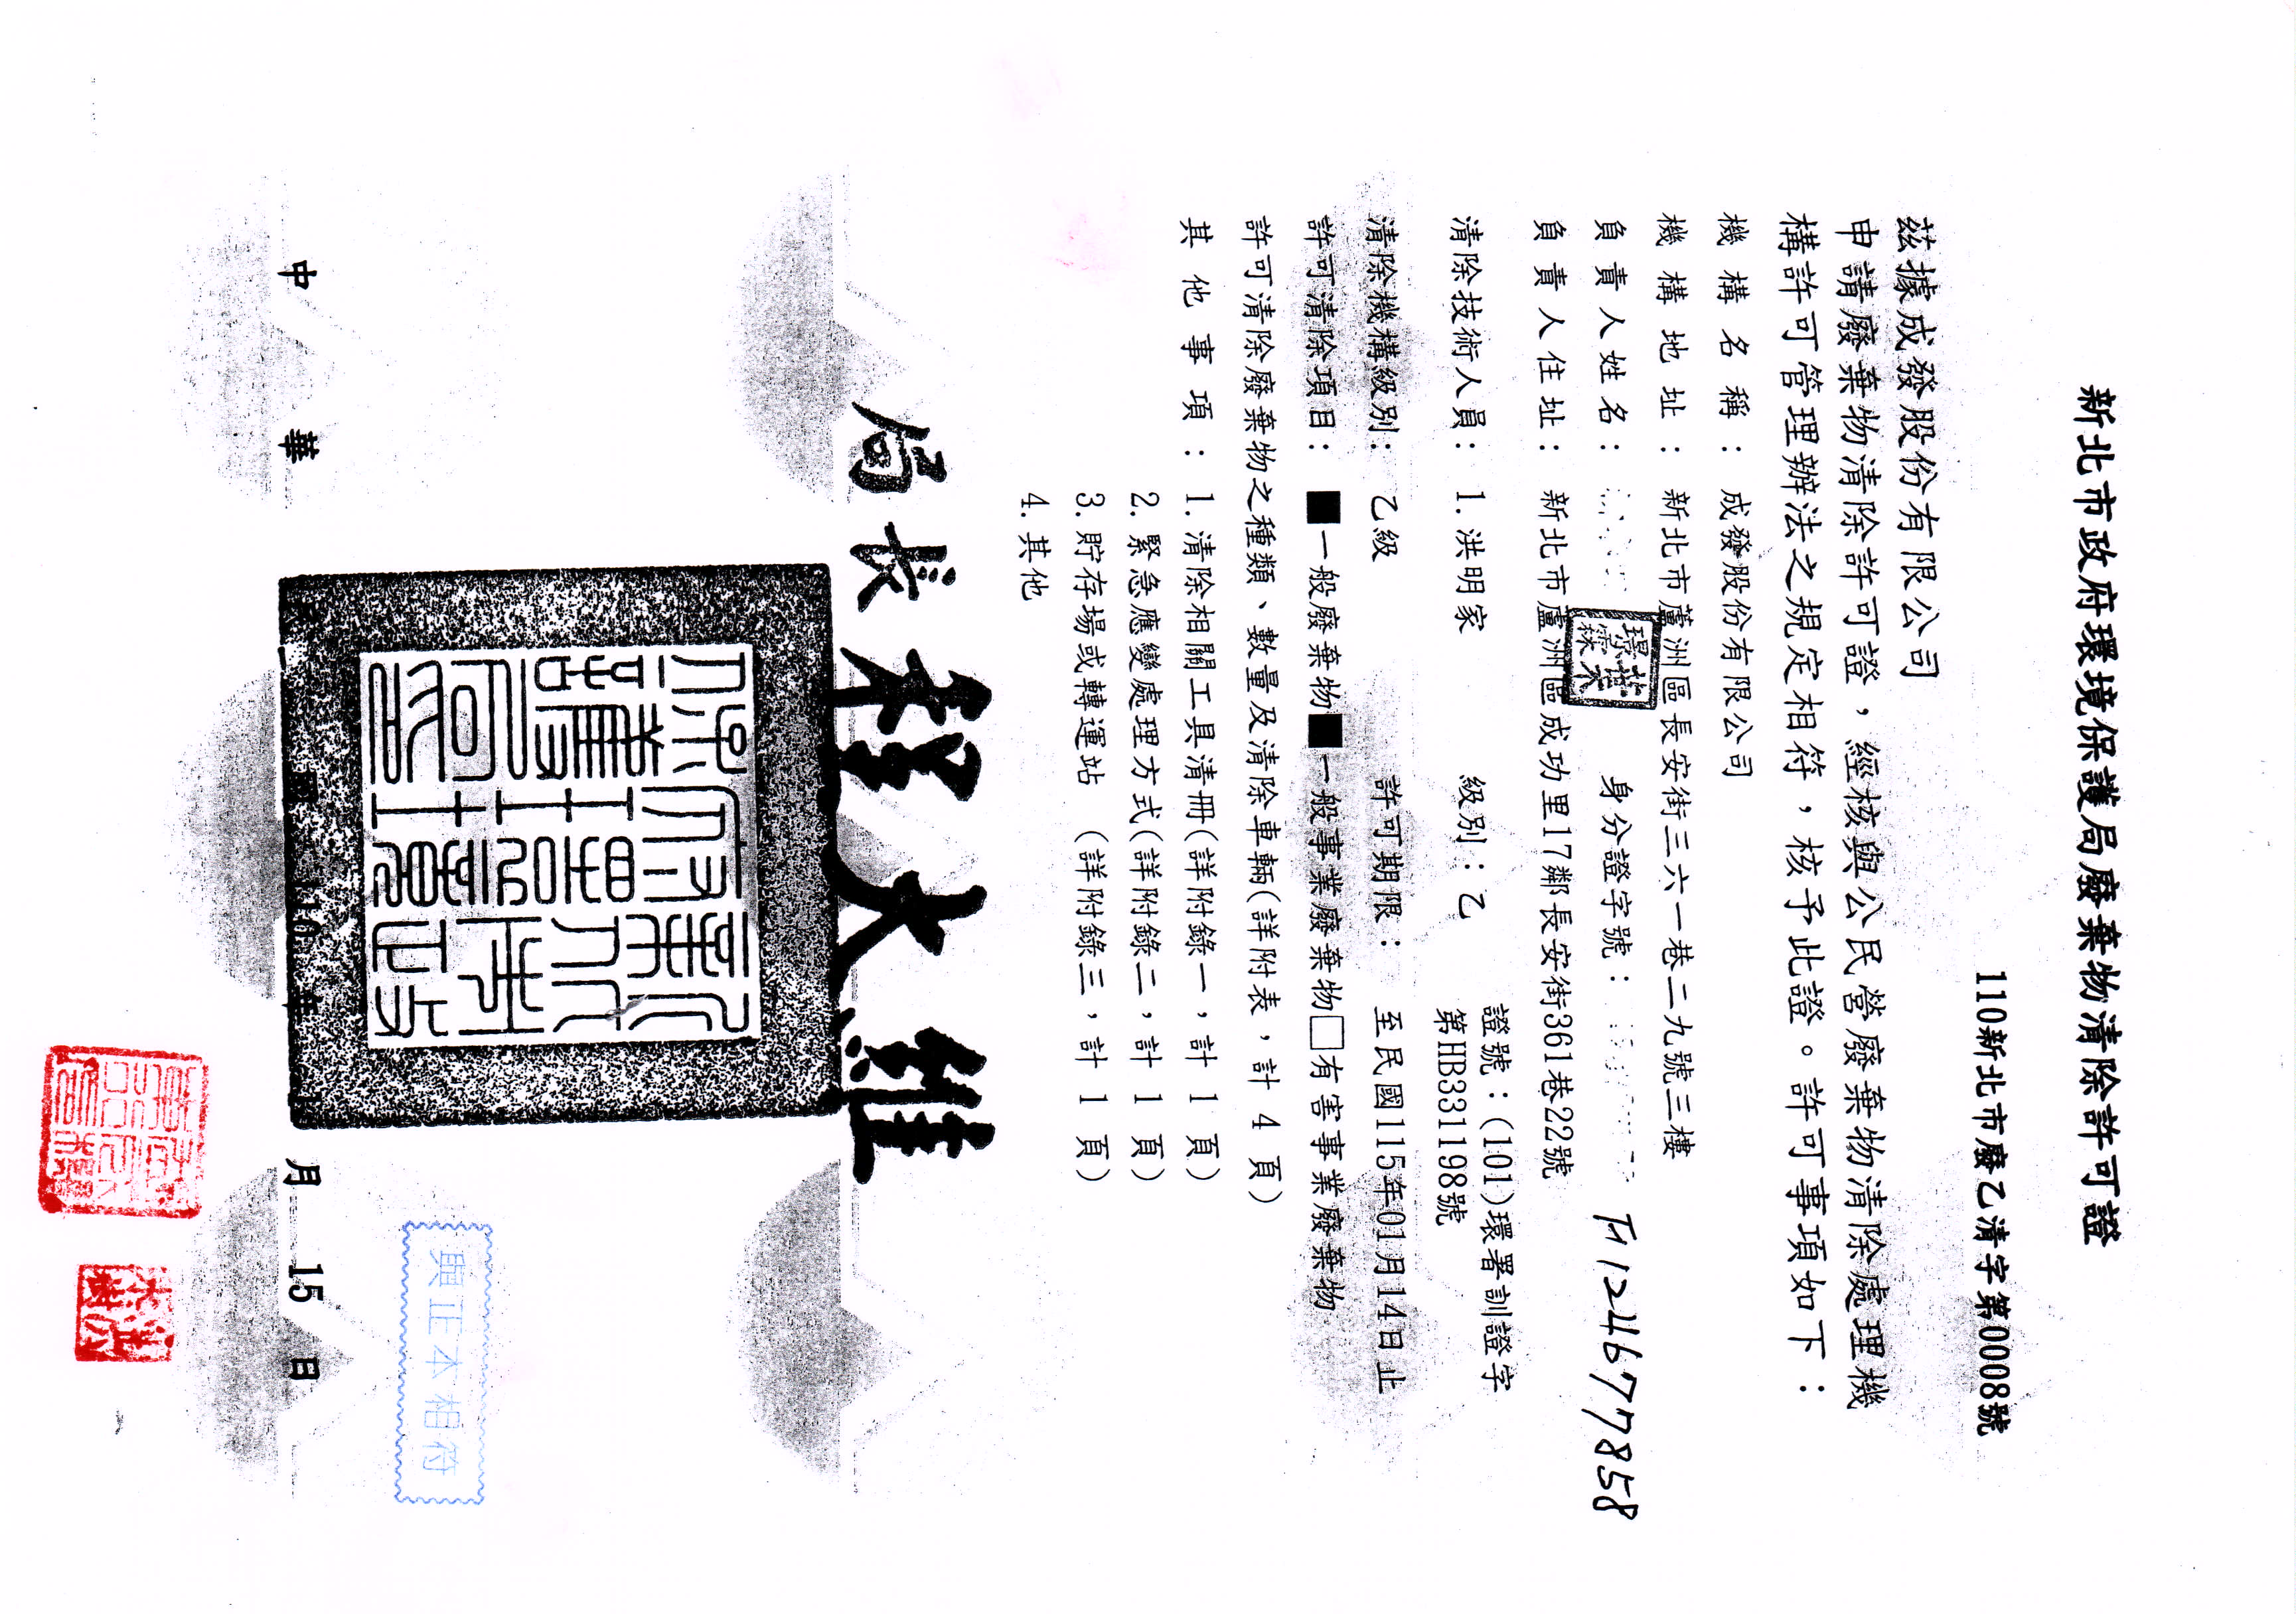 新北市政府環境保護局廢棄物清除許可證
110新北市廢乙清字第0008號
茲據成發股份有限公司
申請廢棄物清除許可證，經核與公民營廢棄物清除處理機
構許可管理辦法之規定相符，核予此證。許可事項如下：
機構名稱：成發股份有限公司
機構地址：新北市蘆洲區長安街三六一巷二九號三樓
負責人姓名： 身分證字號： F124677858
負責人住址：新北市蘆洲區成功里17鄰長安街361巷22號
清除技術人員：1.洪明家 級別：乙 證號：(101)環署訓證字
第HB331198號
清除機構級別：乙級 許可期限：至民國115年01月14日止
許可清除項目：■一般廢棄物■一般事業廢棄物□有害事業廢棄物
許可清除廢棄物之種類、數量及清除車輛(詳附表，計 4 頁)
其他事項：1.清除相關工具清冊(詳附錄一，計 1 頁)
2.緊急應變處理方式(詳附錄二，計 1 頁)
3.貯存場或轉運站 (詳附錄三，計 1 頁)
4.其他
局長程大維
中華 國 110 年 月 15 日
與正本相符